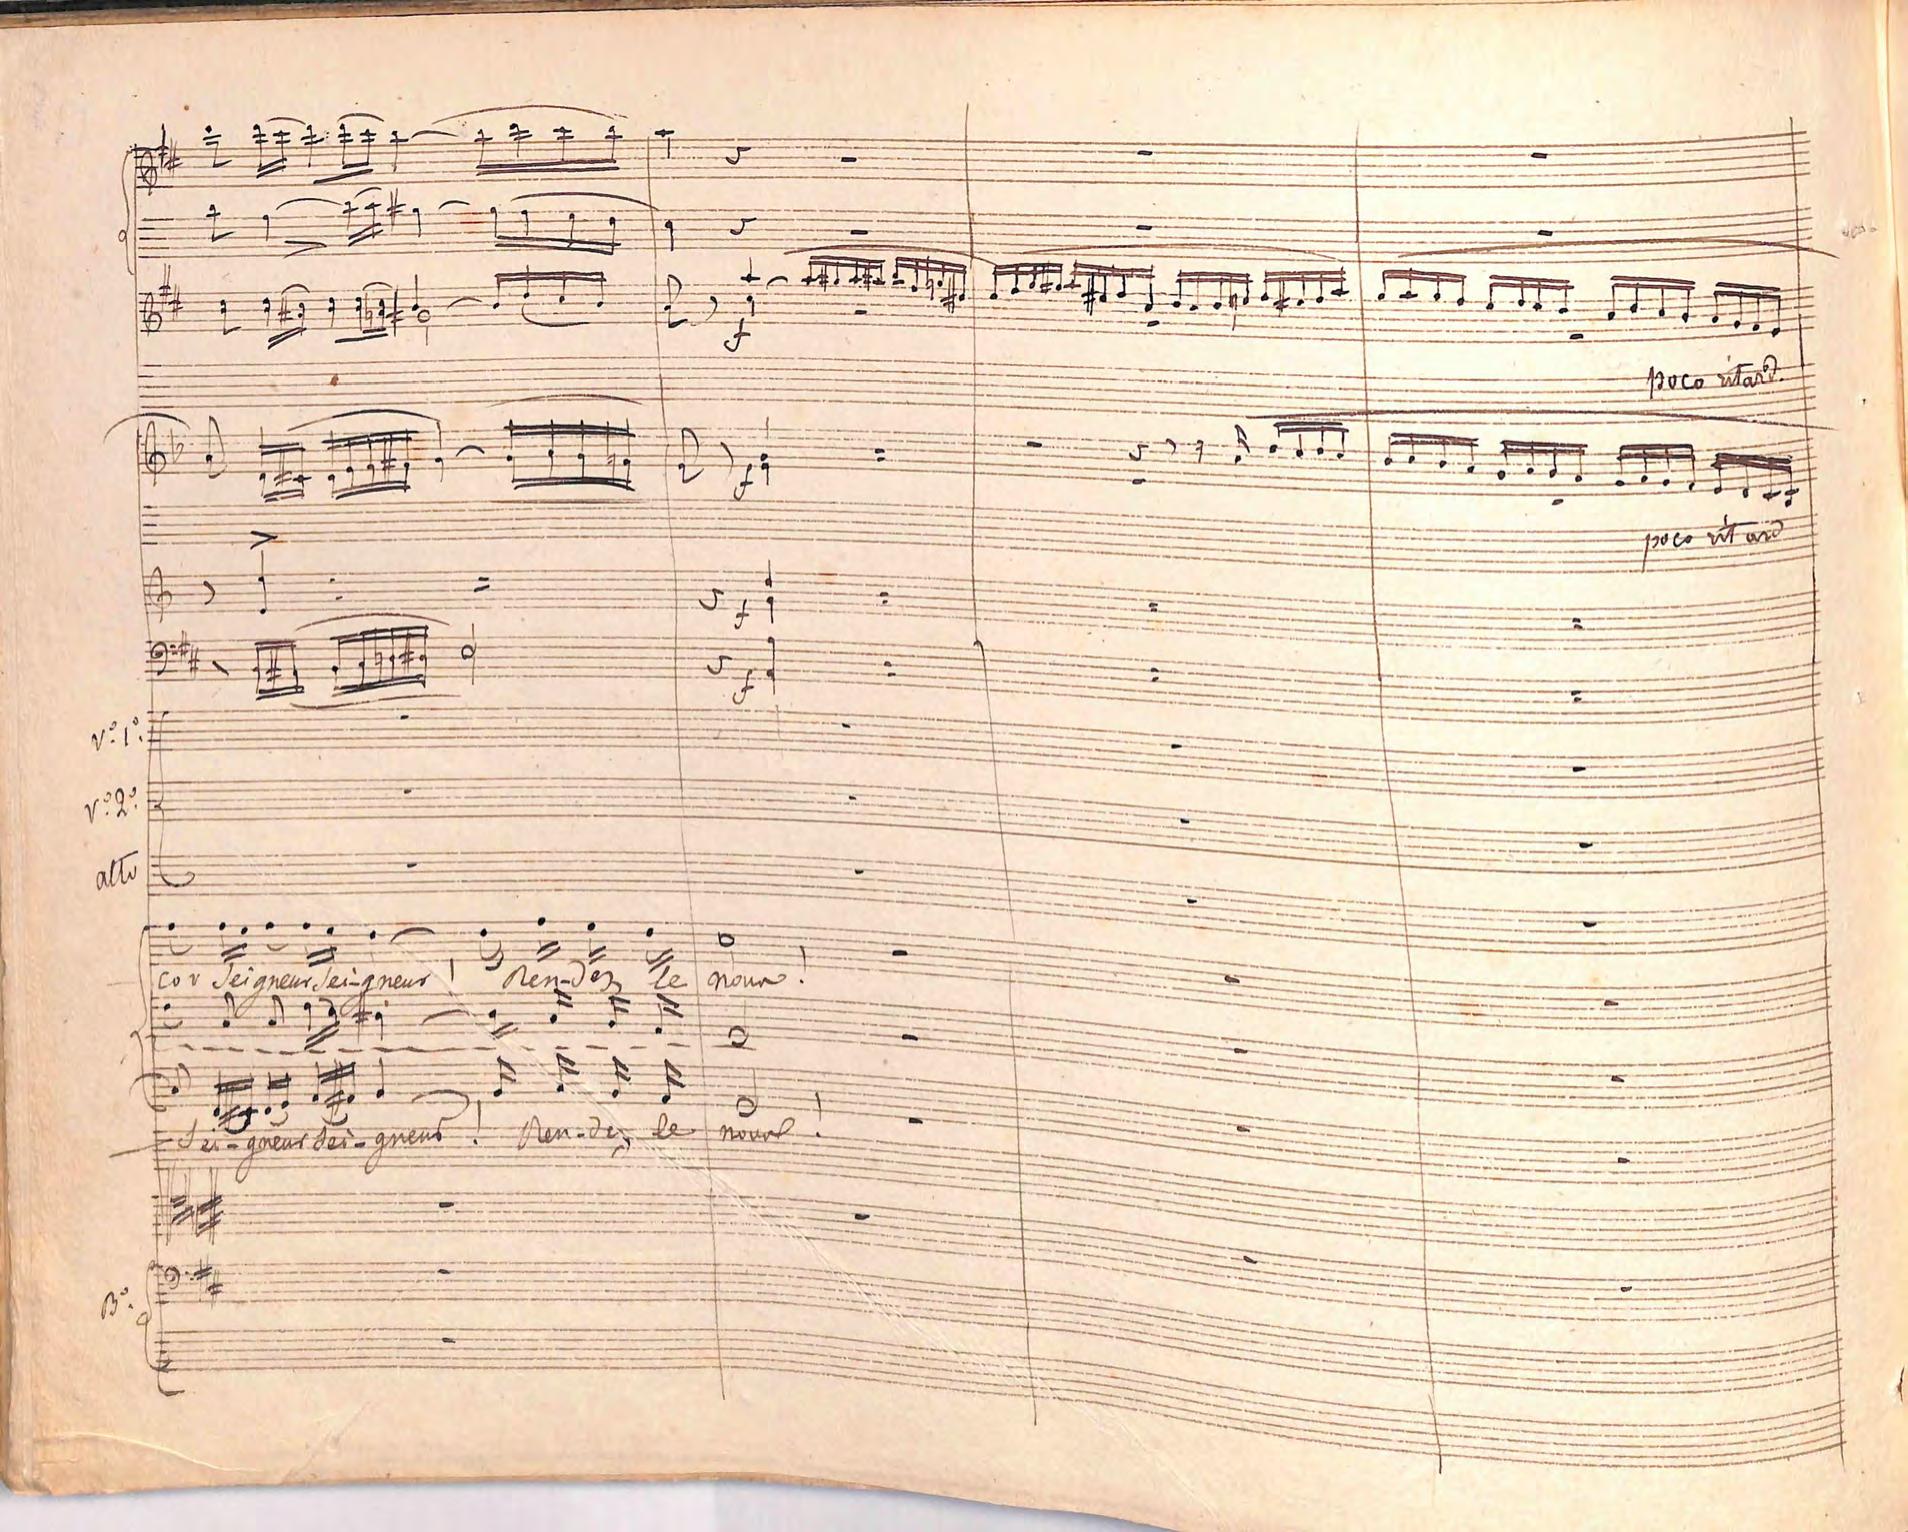 poco ritard.
poco ritard
f
f
f
f
V.º 1.º
V.º 2.º
alto
cor Seigneur Sei-gneur! Ren-dez le nous!
Sei-gneur Sei-gneur! Ren-dez le nous!
B.º